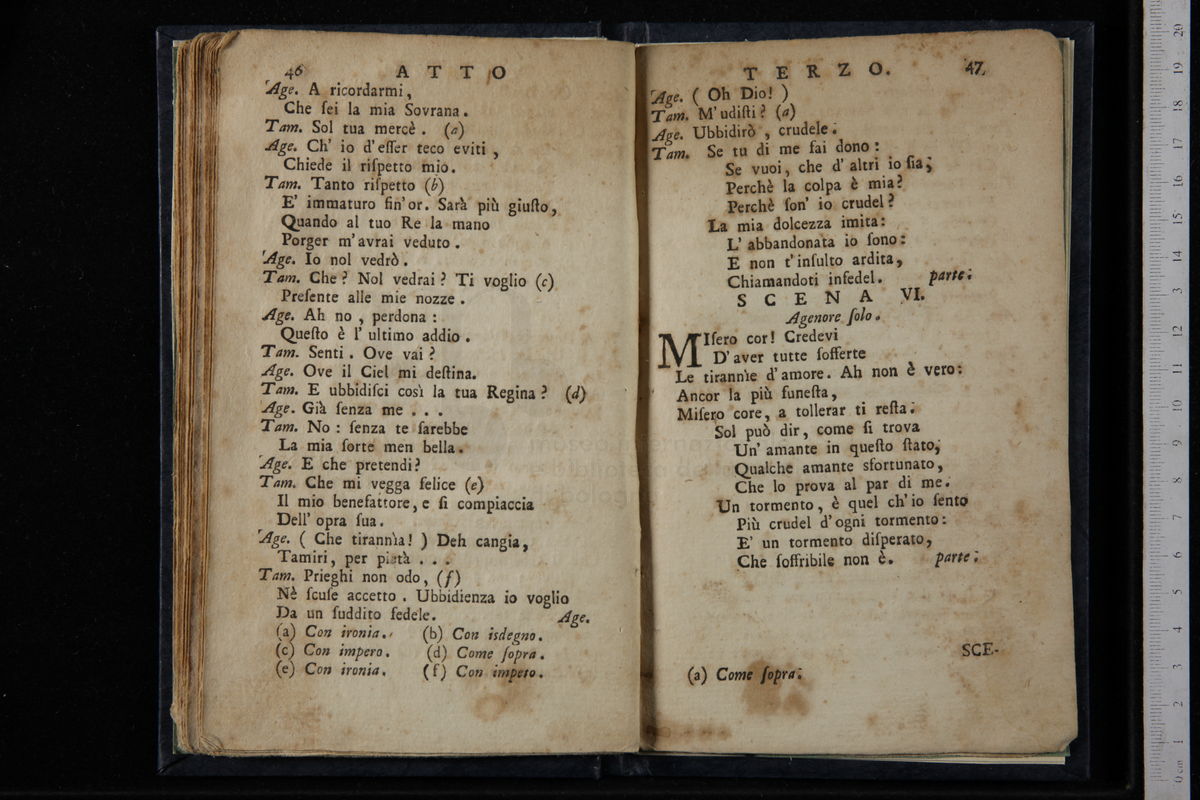 46 ATTO
Age. A ricordarmi,
Che ſei la mia Sovrana.
Tam. Sol tua mercè. (a)
Age. Ch' io d'eſſer teco eviti,
Chiede il riſpetto mio.
Tam. Tanto riſpetto (b)
E' immaturo fin'or. Sarà più giuſto,
Quando al tuo Re la mano
Porger m'avrai veduto.
Age. Io nol vedrò.
Tam. Che? Nol vedrai? Ti voglio (c)
Preſente alle mie nozze.
Age. Ah no, perdona:
Queſto è l' ultimo addio.
Tam. Senti. Ove vai?
Age. Ove il Ciel mi deſtina.
Tam. E ubbidiſci così la tua Regina? (d)
Age. Già ſenza me . . .
Tam. No: ſenza te ſarebbe
La mia ſorte men bella.
Age. E che pretendi?
Tam. Che mi vegga felice (e)
Il mio benefattore, e ſi compiaccia
Dell' opra ſua.
Age. ( Che tirannìa! ) Deh cangia,
Tamiri, per pietà . . .
Tam. Prieghi non odo, (f)
Nè ſcuſe accetto. Ubbidienza io voglio
Da un ſuddito fedele. Age.
(a) Con ironia. (b) Con isdegno.
(c) Con impero. (d) Come ſopra.
(e) Con ironia. (f) Con impeto.
TERZO. 47
Age. ( Oh Dio! )
Tam. M' udiſti? (a)
Age. Ubbidirò, crudele.
Tam. Se tu di me fai dono:
Se vuoi, che d' altri io ſia;
Perchè la colpa è mia?
Perchè ſon' io crudel?
La mia dolcezza imita:
L' abbandonata io ſono:
E non t'inſulto ardita,
Chiamandoti infedel. parte.
SCENA VI.
Agenore ſolo.
MIſero cor! Credevi
D'aver tutte ſofferte
Le tirannìe d'amore. Ah non è vero:
Ancor la più funeſta,
Miſero core, a tollerar ti reſta.
Sol può dir, come ſi trova
Un' amante in queſto ſtato,
Qualche amante sfortunato,
Che lo prova al par di me.
Un tormento, è quel ch'io ſento
Più crudel d'ogni tormento:
E' un tormento diſperato,
Che ſoffribile non è. parte.
SCE-
(a) Come ſopra.